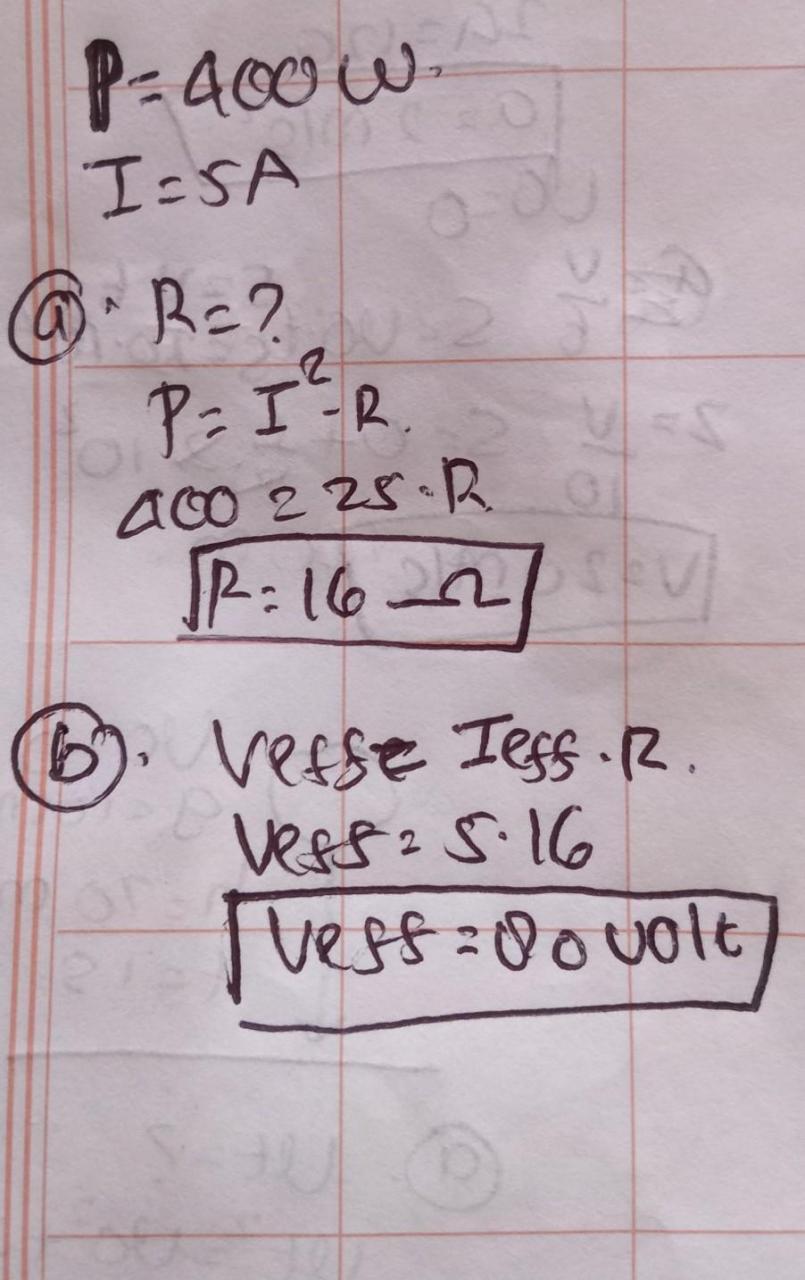 P=400W.
I=5A
ⓐ. R=?
P=I².R.
400=25.R
R=16Ω
ⓑ. Veff= Ieff.R.
Veff=5.16
Veff=80volt